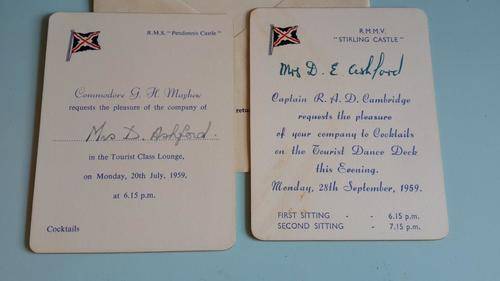 R.M.S. "Pendennis Castle"
Commodore G. H. Mayhew
requests the pleasure of the company of
Mrs D. Ashford.
in the Tourist Class Lounge,
on Monday, 20th July, 1959,
at 6.15 p.m.
Cocktails
R.M.M.V.
"STIRLING CASTLE"
Mrs D. E. Ashford
Captain R. A. D. Cambridge
requests the pleasure
of your company to Cocktails
on the Tourist Dance Deck
this Evening.
Monday, 28th September, 1959.
FIRST SITTING - - 6.15 p.m.
SECOND SITTING - 7.15 p.m.